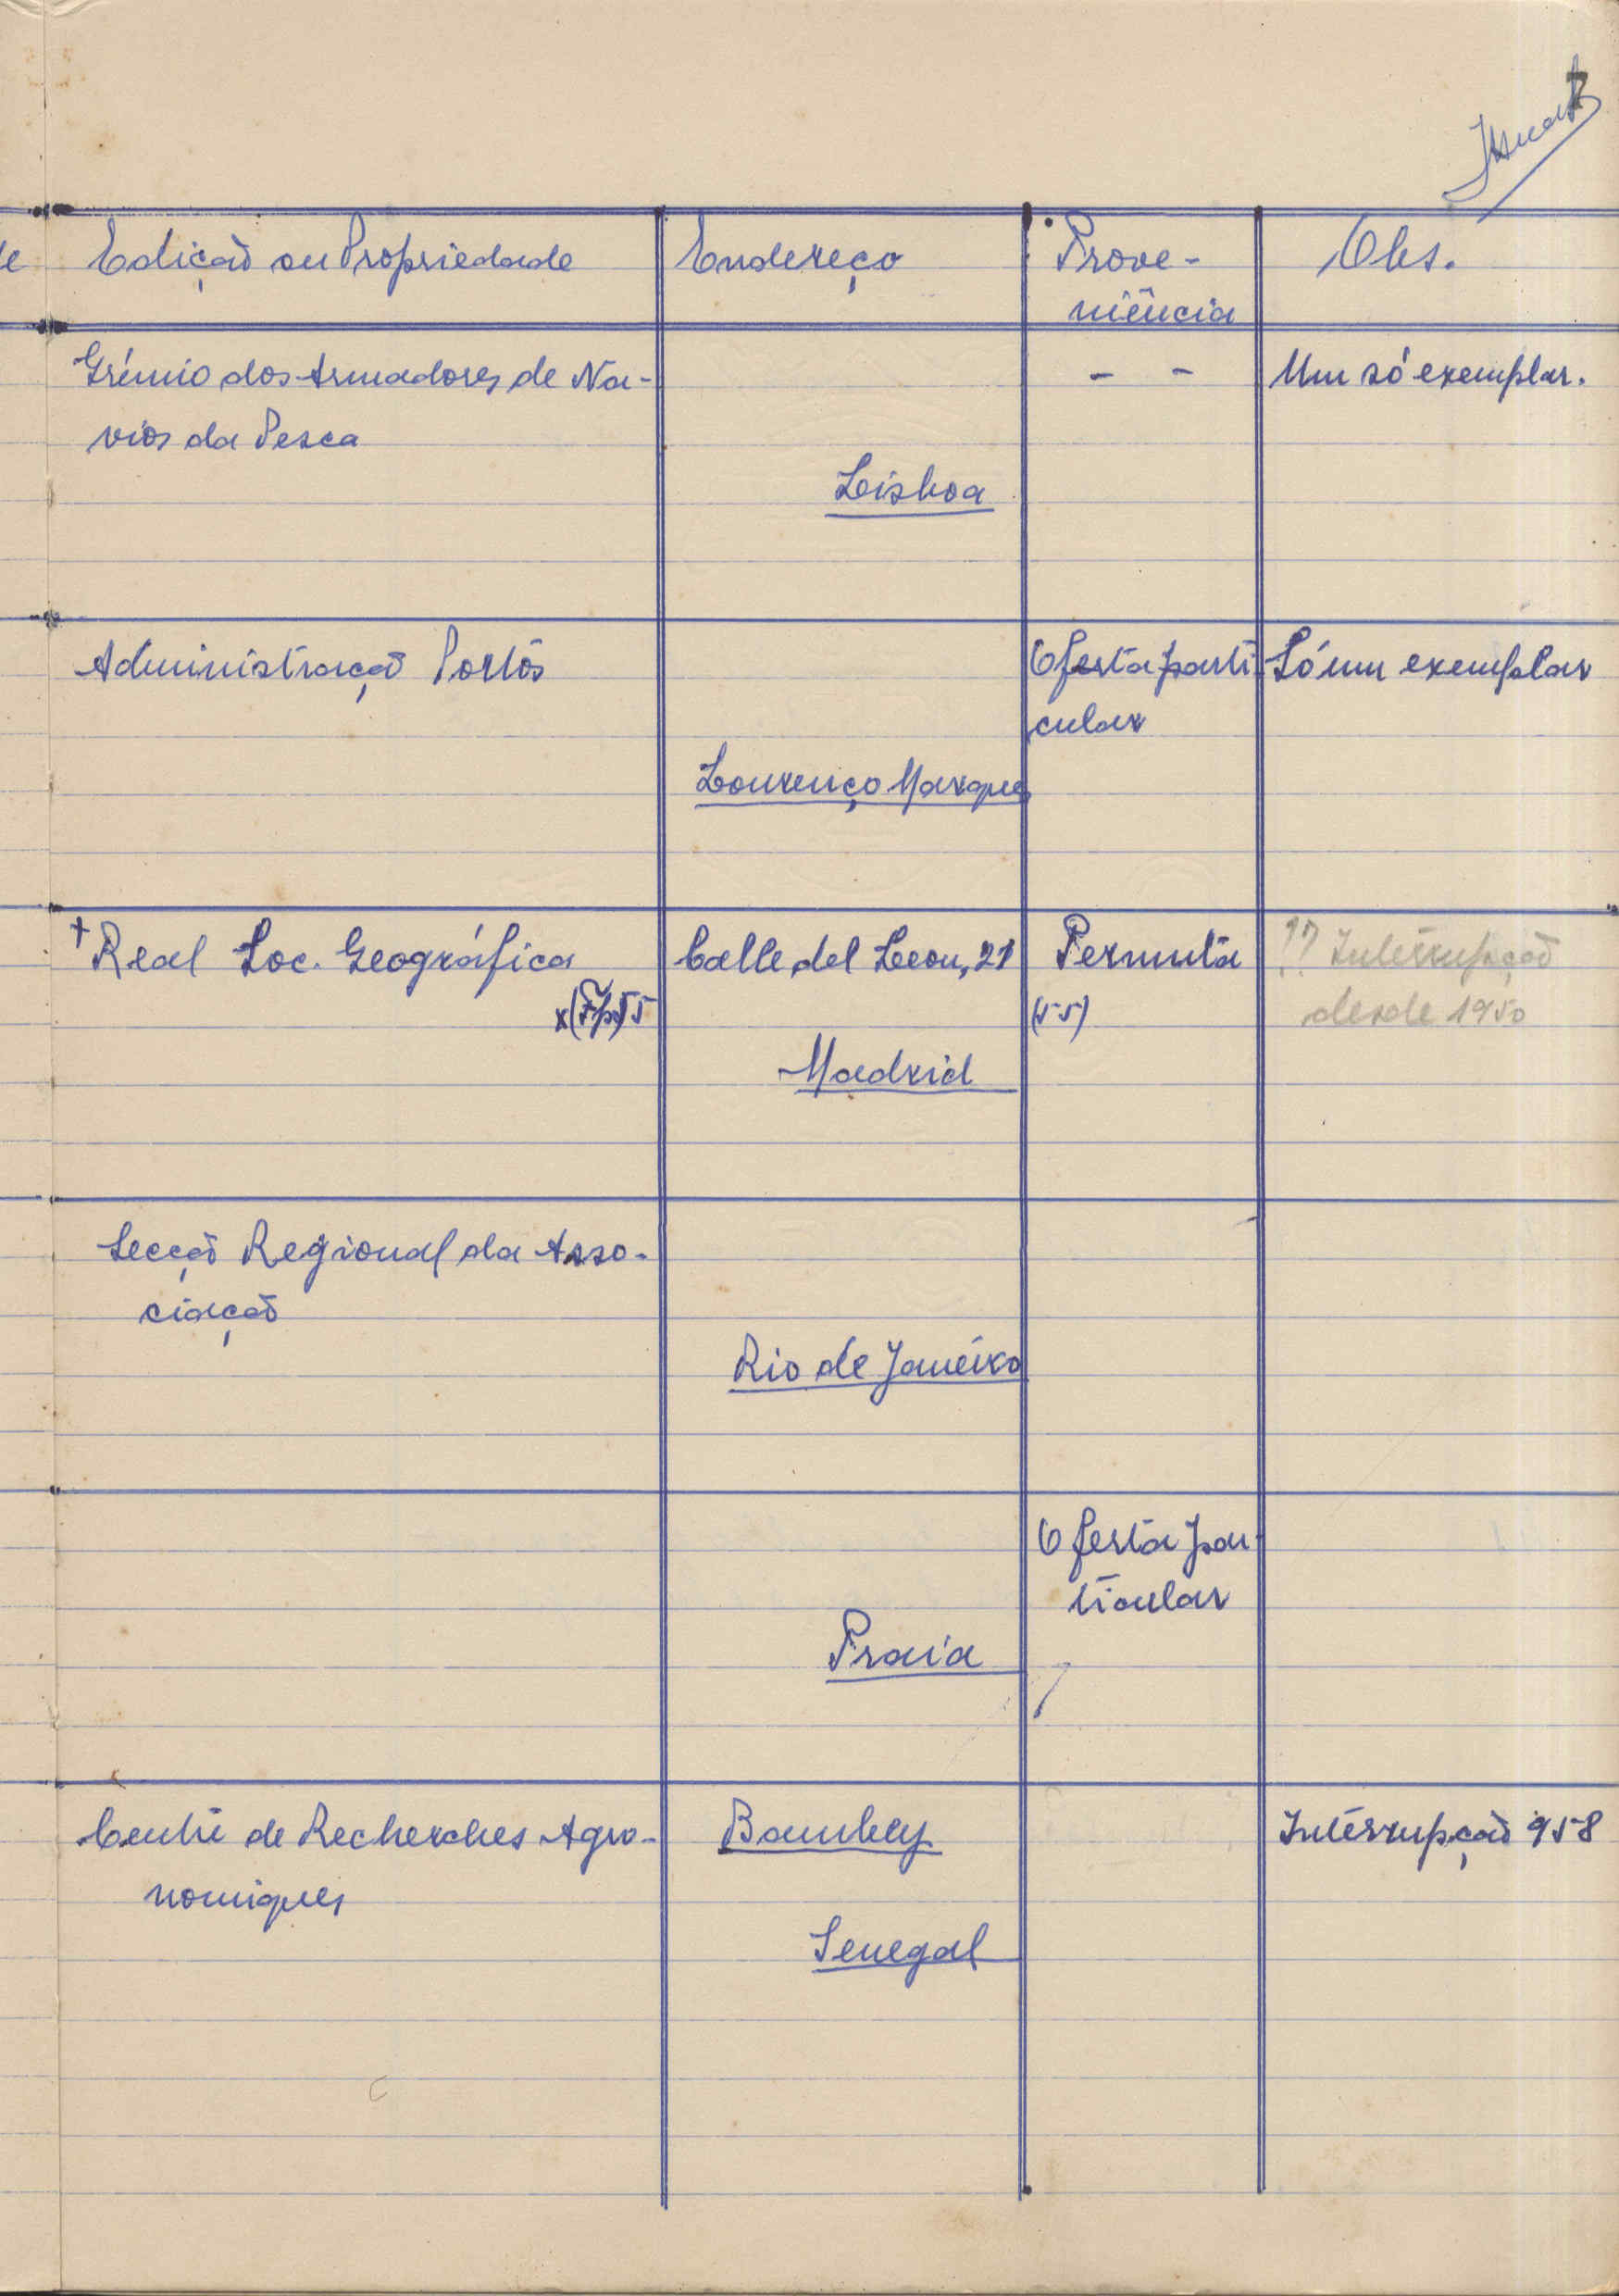 7
Edição ou Propriedade Endereço Prove- Obs.
niência
Grémio dos Armadores de Na- - - Um só exemplar.
vios da Pesca
Lisboa
Administração Portos Oferta parti- Só um exemplar
cular
Lourenço Marques
+ Real Soc. Geográfica Calle del Leon, 21 Permuta !? Interrupção
(55) desde 1950
Madrid
Secção Regional da Asso-
ciação
Rio de Janeiro
Oferta par-
ticular
Praia
Centre de Recherches Agro- Bambey Interrupção 958
nomiques
Senegal